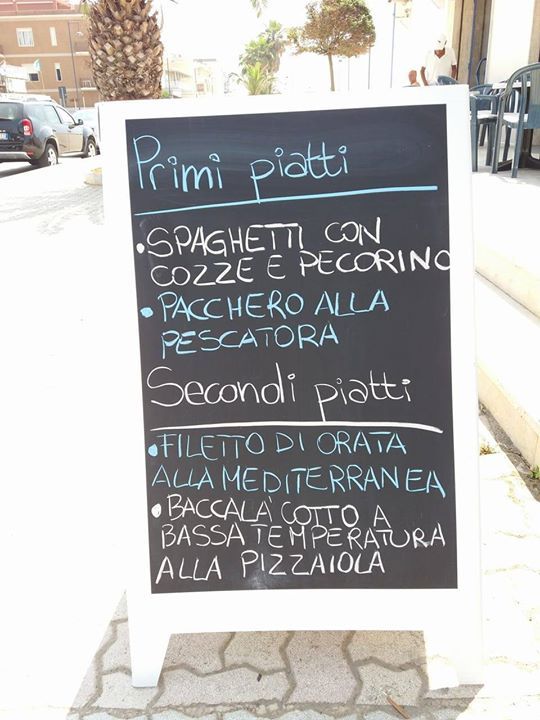 Primi piatti
• SPAGHETTI CON
COZZE E PECORINO
• PACCHERO ALLA
PESCATORA
Secondi piatti
• FILETTO DI ORATA
ALLA MEDITERRANEA
• BACCALA' COTTO A
BASSA TEMPERATURA
ALLA PIZZAIOLA